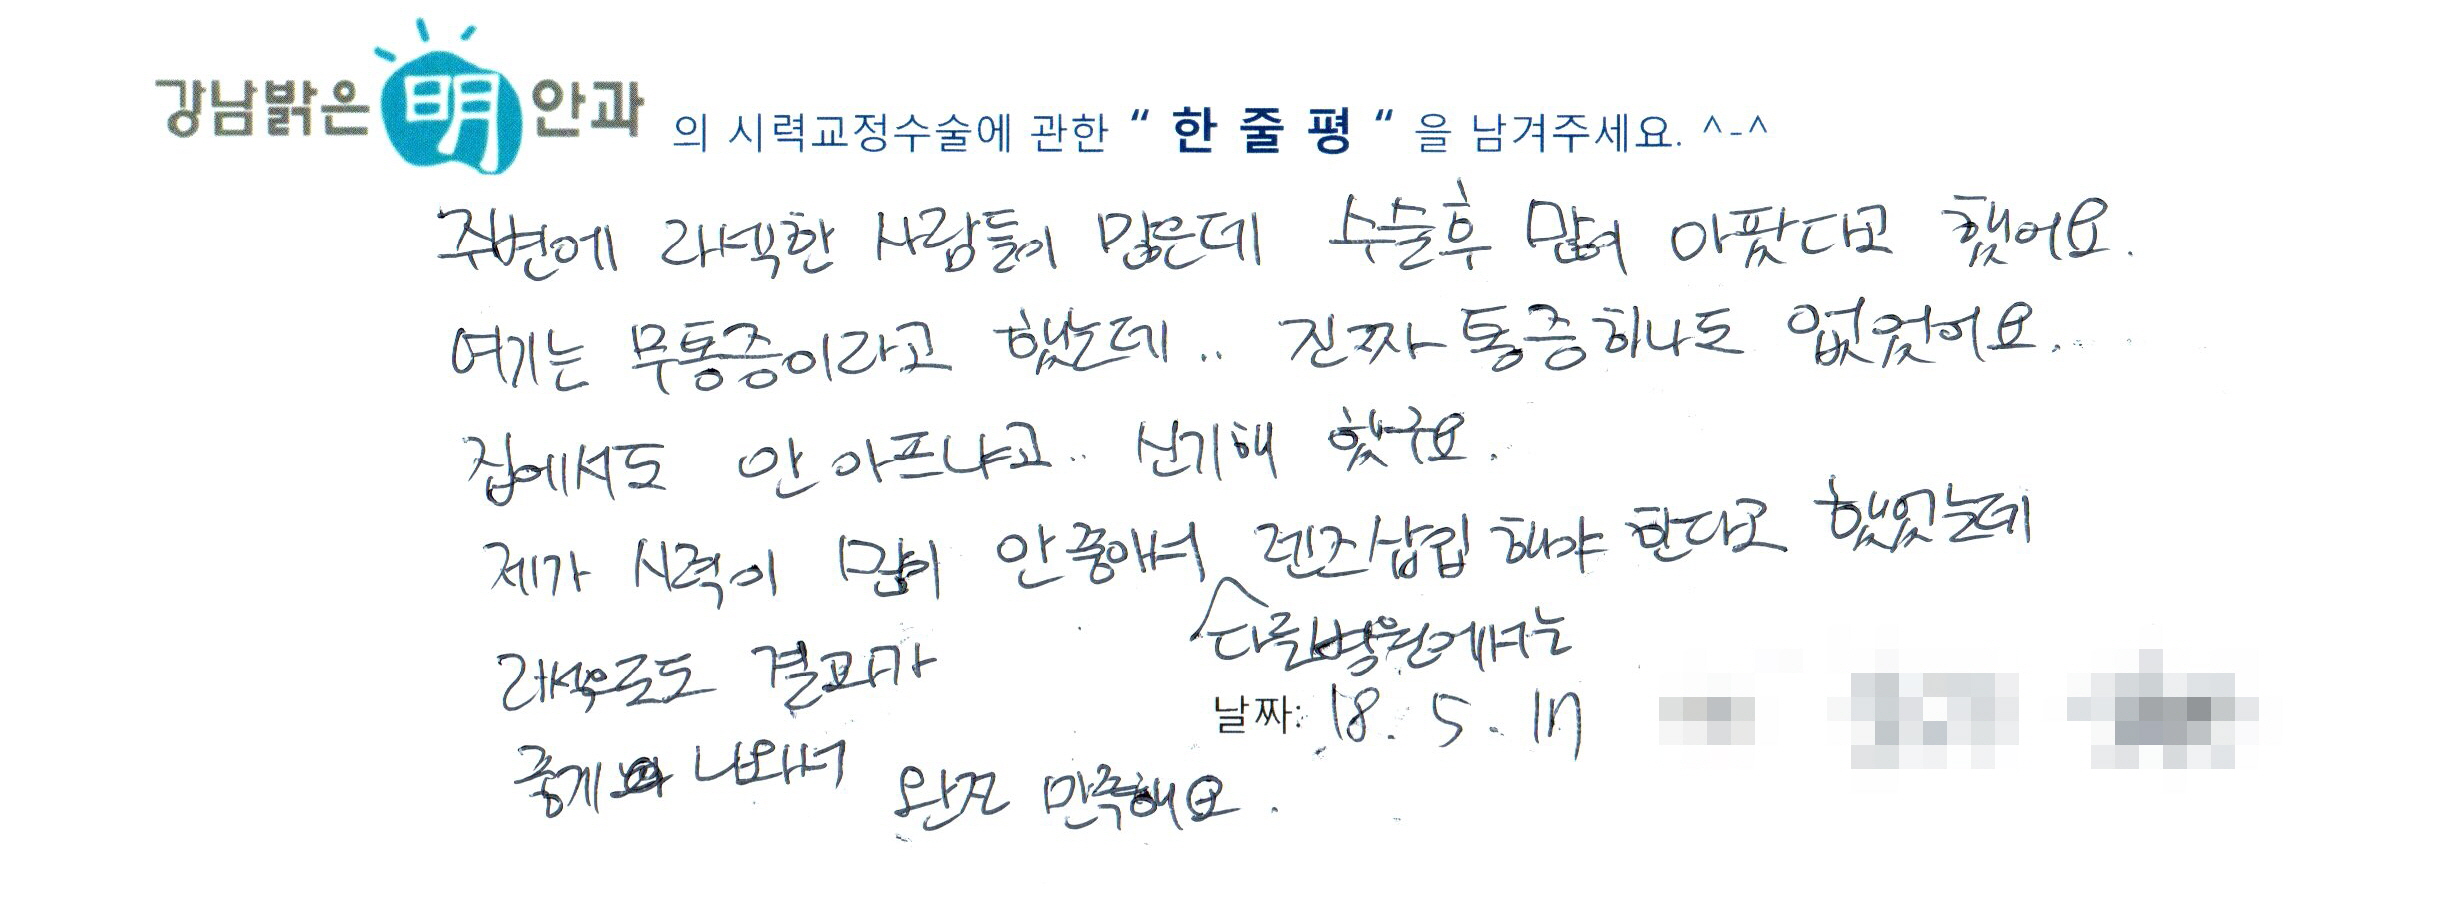 강남밝은明안과 의 시력교정수술에 관한 “ 한 줄 평 “ 을 남겨주세요. ^-^
주변에 라섹한 사람들이 많은데 수술후 많이 아팠다고 했어요.
여기는 무통증이라고 했는데.. 진짜 통증하나도 없었어요.
집에서도 안 아프냐고.. 신기해 했구요.
제가 시력이 많이 안좋아서 렌즈삽입 해야 한다고 했었는데
다른병원에서는
라섹으로도 결과가
날짜: 18. 5. 17
좋게 나와서 완전 만족해요.